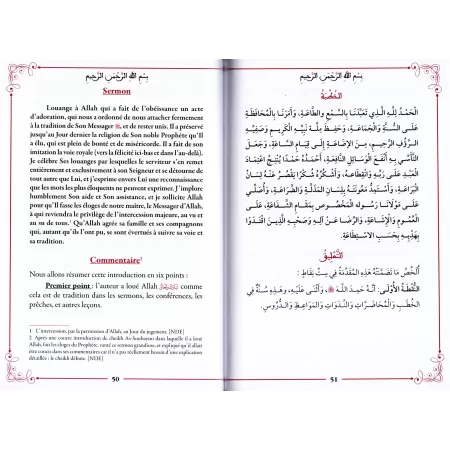 بِسْمِ اللَّهِ الرَّحْمَٰنِ الرَّحِيمِ
Sermon
Louange à Allah qui a fait de l'obéissance un acte
d'adoration, qui nous a ordonné de nous attacher fermement
à la tradition de Son Messager ﷺ, et de rester unis. Il a préservé
jusqu'au Jour dernier la religion de Son noble Prophète qu'Il
a élu, qui est plein de bonté et de miséricorde. Il a fait de son
imitation la voie royale (vers la félicité ici-bas et dans l'au-delà).
Je célèbre Ses louanges par lesquelles le serviteur s'en remet
entièrement et exclusivement à son Seigneur et se détourne de
tout autre que Lui, et j'exprime envers Lui une reconnaissance
que les mots les plus éloquents ne peuvent exprimer. J'implore
humblement Son aide et Son assistance, et je sollicite Allah
pour qu'Il fasse les éloges de notre maître, le Messager d'Allah,
à qui reviendra le privilège de l'intercession majeure, au vu et
au su de tous.¹ Qu'Allah agrée sa famille et ses compagnons
qui, autant qu'ils l'ont pu, se sont évertués à suivre sa voie et
sa tradition.
Commentaire²
Nous allons résumer cette introduction en six points :
Premier point : l'auteur a loué Allah comme
cela est de tradition dans les sermons, les conférences, les
prêches, et autres leçons.
1 L'intercession, par la permission d'Allah, au Jour du jugement. [NDE]
2 Après une courte introduction de cheikh As-Souhaymi dans laquelle il a loué
Allah, fait les éloges du Prophète, vanté ce sermon grandiose, et expliqué qu'il avait
été concis dans ses commentaires car il n'a pas réellement besoin d'une explication
détaillée : le cheikh débute. [NDE]
50
بِسْمِ اللَّهِ الرَّحْمَٰنِ الرَّحِيمِ
الخُطْبَةُ
الْحَمْدُ لِلَّهِ الَّذِي تَعَبَّدَنَا بِالسَّمْعِ وَالطَّاعَةِ، وَأَمَرَنَا بِالْمُحَافَظَةِ
عَلَى السُّنَّةِ وَالْجَمَاعَةِ، وَحَفِظَ مِلَّةَ نَبِيِّهِ الْكَرِيمِ وَصَفِيِّهِ
الرَّؤُوفِ الرَّحِيمِ، مِنَ الْإِضَاعَةِ إِلَى قِيَامِ السَّاعَةِ، وَجَعَلَ
التَّأَسِّي بِهِ أَنْفَعَ الْوَسَائِلِ النَّافِعَةِ، أَحْمَدُهُ حَمْدًا يُنْتِجُ اعْتِمَادَ
الْعَبْدِ عَلَى رَبِّهِ وَانْقِطَاعَهُ، وَأَشْكُرُهُ شُكْرًا يَقْصُرُ عَنْهُ لِسَانُ
الْبَرَاعَةِ، وَأَسْتَمِدُّ مَعُونَتَهُ بِلِسَانِ الْمَذَلَّةِ وَالضَّرَاعَةِ، وَأُصَلِّي
عَلَى مَوْلَانَا رَسُولِهِ الْمَخْصُوصِ بِمَقَامِ الشَّفَاعَةِ، عَلَى
الْعُمُومِ وَالْإِشَاعَةِ، وَالرِّضَا عَنْ آلِهِ وَصَحْبِهِ الَّذِينَ اقْتَدَوْا
بِهَدْيِهِ بِحَسَبِ الِاسْتِطَاعَةِ.
التَّعْلِيقُ
أُلَخِّصُ مَا تَضَمَّنَتْهُ هَذِهِ الْمُقَدِّمَةُ فِي سِتِّ نِقَاطٍ:
النُّقْطَةُ الْأُولَى: أَنَّهُ حَمِدَ اللَّهَ، وَأَثْنَى عَلَيْهِ، وَهَذِهِ سُنَّةٌ فِي
الْخُطَبِ وَالْمُحَاضَرَاتِ وَالنَّدَوَاتِ وَالْمَوَاعِظِ وَالدُّرُوسِ.
51